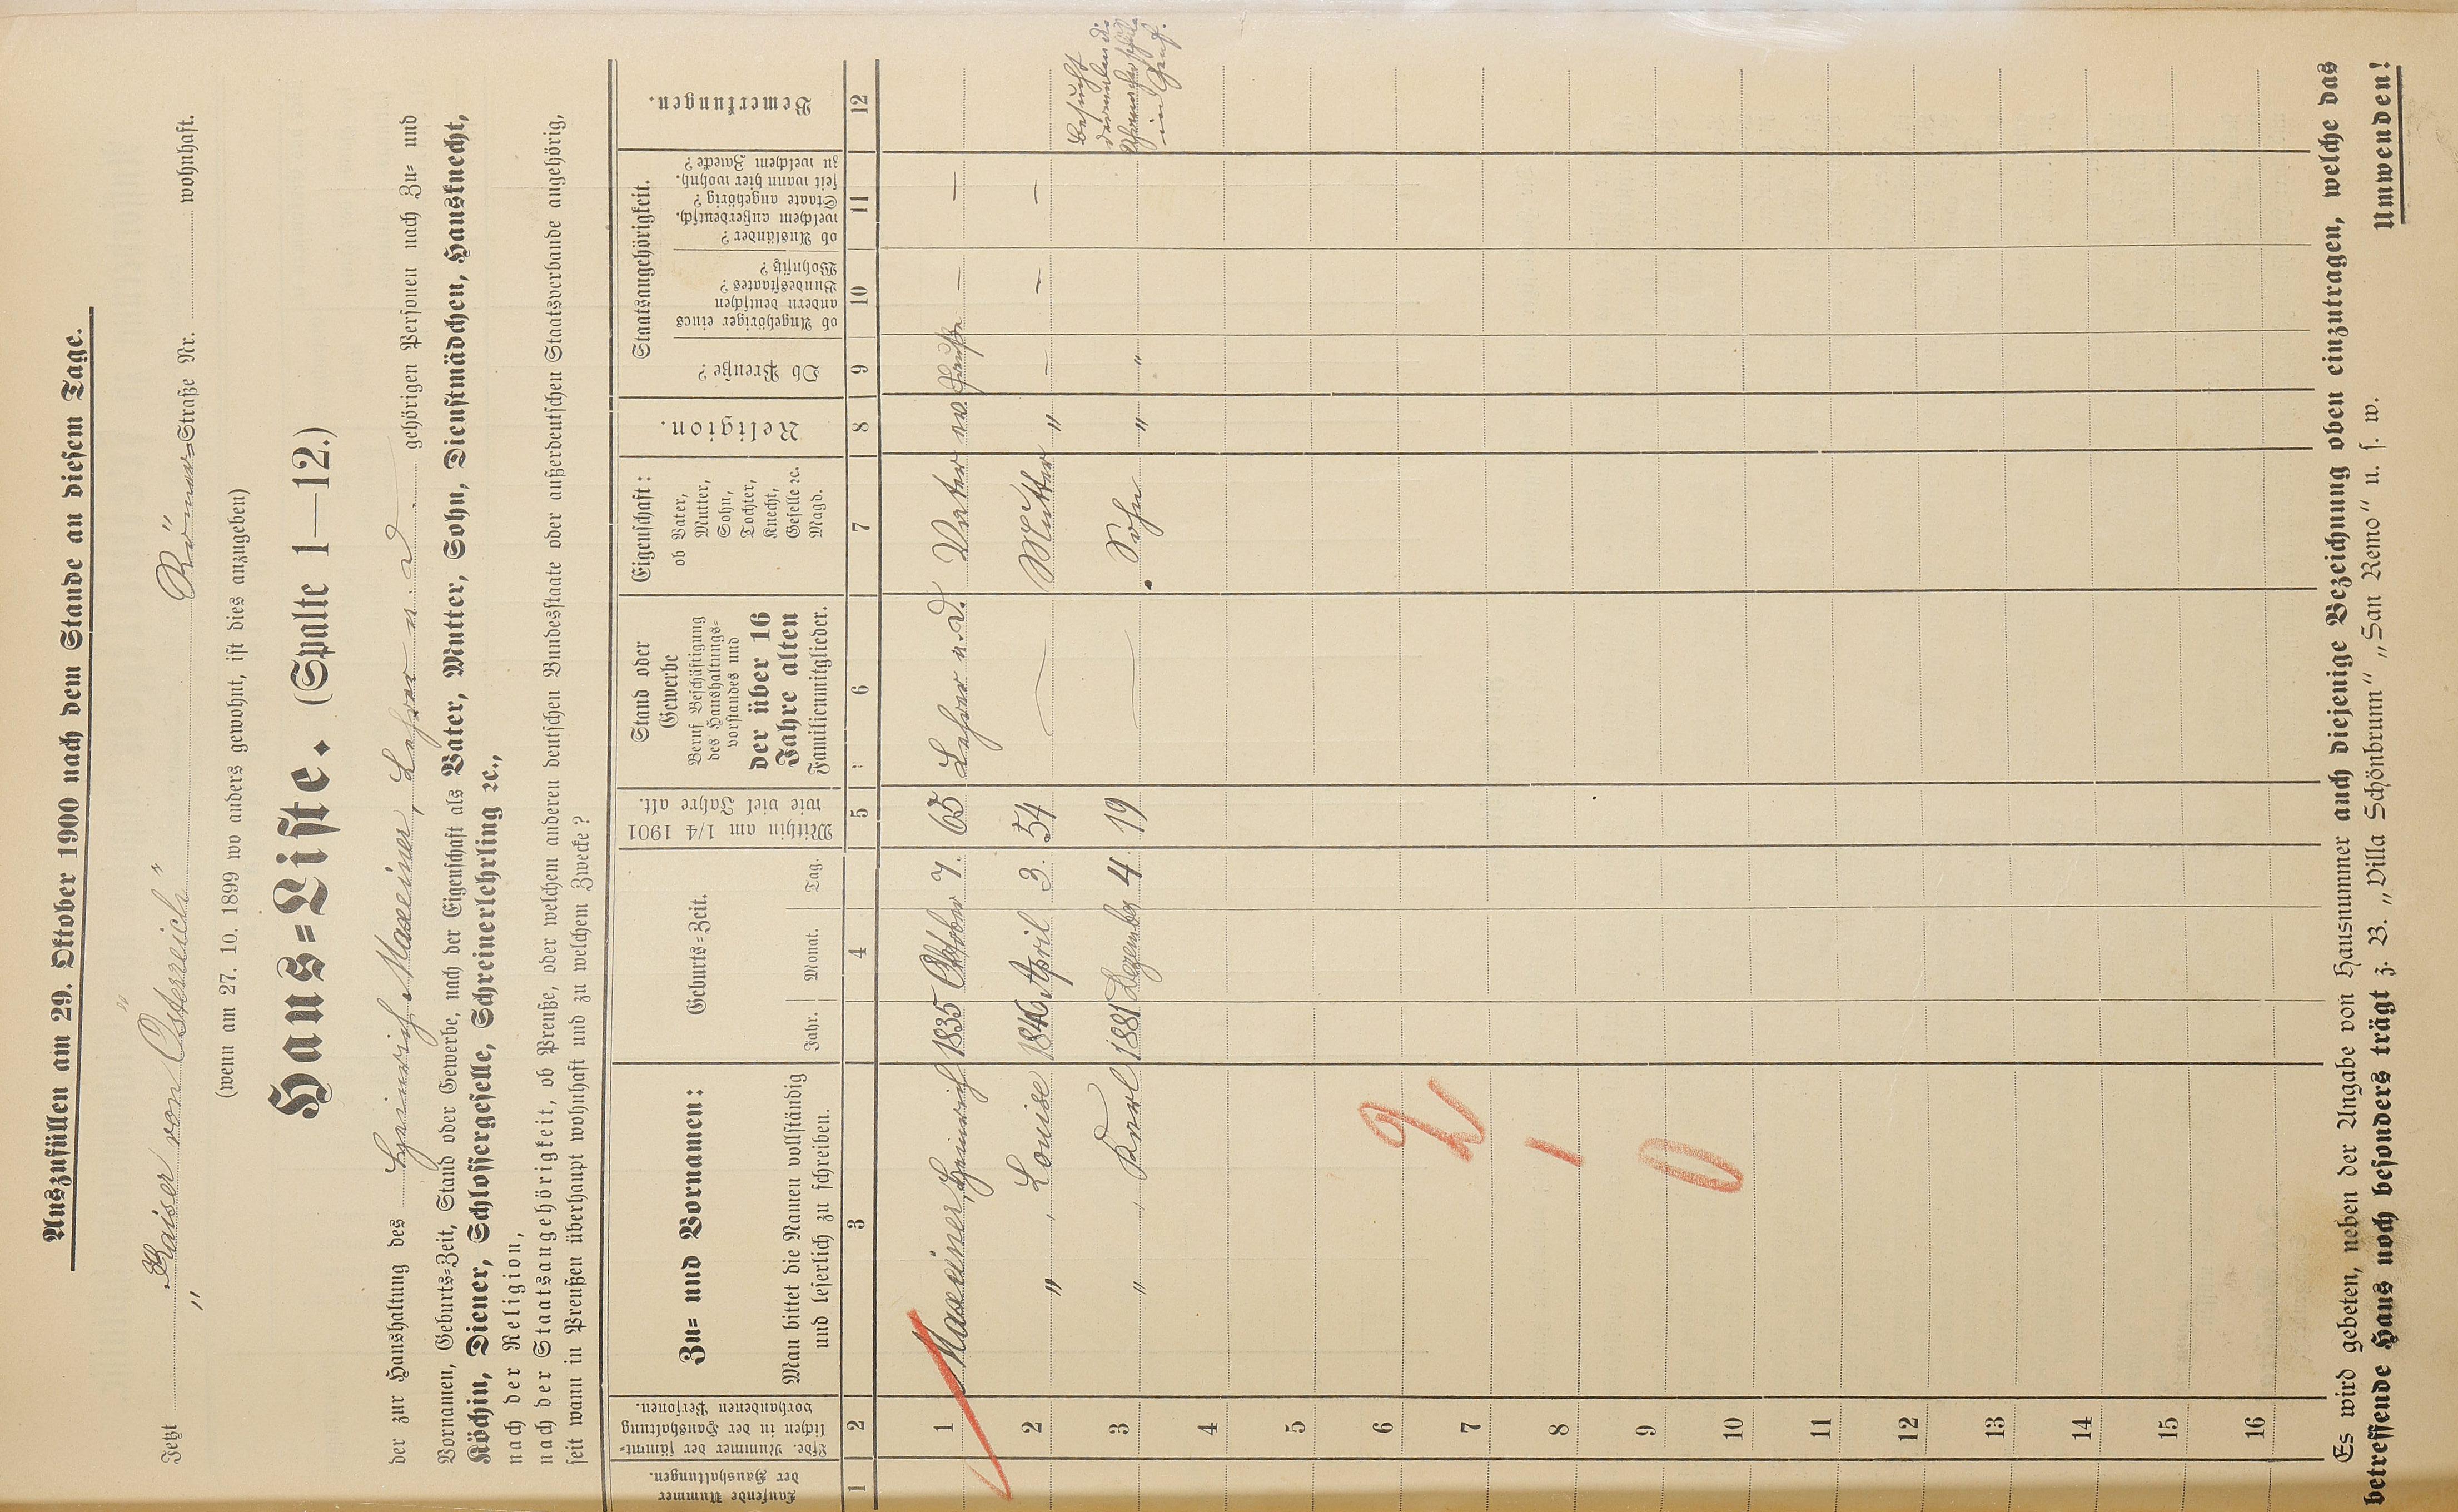 Auszufüllen am 29. Oktober 1900 nach dem Stande an diesem Tage.
Jetzt „Kaiser von Österreich“ Römer=Straße Nr. wohnhaft.
"
(wenn am 27. 10. 1899 wo anders gewohnt, ist dies anzugeben)
Haus=Liste. (Spalte 1—12.)
der zur Haushaltung des Heinrich Maxeiner, Lehrer a. D. gehörigen Personen nach Zu= und
Vornamen, Geburts=Zeit, Stand oder Gewerbe, nach der Eigenschaft als Vater, Mutter, Sohn, Dienstmädchen, Hausknecht,
Köchin, Diener, Schlossergeselle, Schreinerlehrling ꝛc.,
nach der Religion,
nach der Staatsangehörigkeit, ob Preuße, oder welchem anderen deutschen Bundesstaate oder außerdeutschen Staatsverbande angehörig,
seit wann in Preußen überhaupt wohnhaft und zu welchem Zwecke?
Laufende Nummer
der Haushaltungen.
Lfde. Nummer der sämmt=
lichen in der Haushaltung
vorhandenen Personen.
Zu= und Vornamen:
Man bittet die Namen vollständig
und leserlich zu schreiben.
Geburts=Zeit.
Jahr. Monat. Tag.
Mithin am 1/4 1901
wie viel Jahre alt.
Stand oder
Gewerbe
Beruf Beschäftigung
des Haushaltungs=
vorstandes und
der über 16
Jahre alten
Familienmitglieder.
Eigenschaft:
ob Vater,
Mutter,
Sohn,
Tochter,
Knecht,
Geselle ꝛc.
Magd.
Religion.
Staatsangehörigkeit.
Ob Preuße?
ob Angehöriger eines
andern deutschen
Bundesstaates?
Wohnsitz?
ob Ausländer?
welchem außerdeutsch.
Staate angehörig?
seit wann hier wohnh.
zu welchem Zwecke?
Bemerkungen.
1 2 3 4 5 6 7 8 9 10 11 12
1 Maxeiner, Heinrich 1835 Oktober 7. 65 Lehrer a. D. Vater ev. Preuße — —
2 " , Louise 1846 April 3. 54 — Mutter " — — —
3 " , Karl 1881 Dezember 4. 19 — Sohn " "
Besucht
dermalen die
in Genf.
4
5
6
7
8
9
10
11
12
13
14
15
16
2
1
0
Es wird gebeten, neben der Angabe von Hausnummer auch diejenige Bezeichnung oben einzutragen, welche das
betreffende Haus noch besonders trägt z. B. „Villa Schönbrunn“ „San Remo“ u. s. w.
Umwenden!